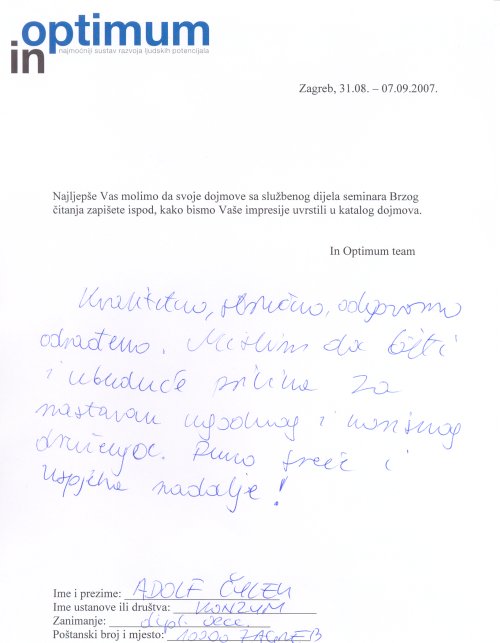 optimum
in
najmoćniji sustav razvoja ljudskih potencijala
Zagreb, 31.08. – 07.09.2007.
Najljepše Vas molimo da svoje dojmove sa službenog dijela seminara Brzog
čitanja zapišete ispod, kako bismo Vaše impresije uvrstili u katalog dojmova.
In Optimum team
Kvalitetno, stručno, odgovorno
odrađeno. Mislim da
i ubuduće prilika za
nastavak ugodnog i korisnog
druženja. Puno sreće i
uspjeha nadalje!
Ime i prezime: ADOLF
Ime ustanove ili društva: KONZUM
Zanimanje: dipl. oecc
Poštanski broj i mjesto: 10200 ZAGREB